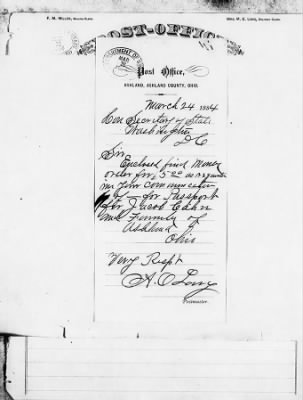 POST-OFFICE
Post Office,
ASHLAND, ASHLAND COUNTY, OHIO.
March 24 1884
Hon Secretary of State
Washington
D C
Sir
Enclosed find Money
order for 5.00 as
in your
for Passport
for Jacob Cahn
and Family of
Ashland
Ohio
Very Respt
A. O. Long
Postmaster.